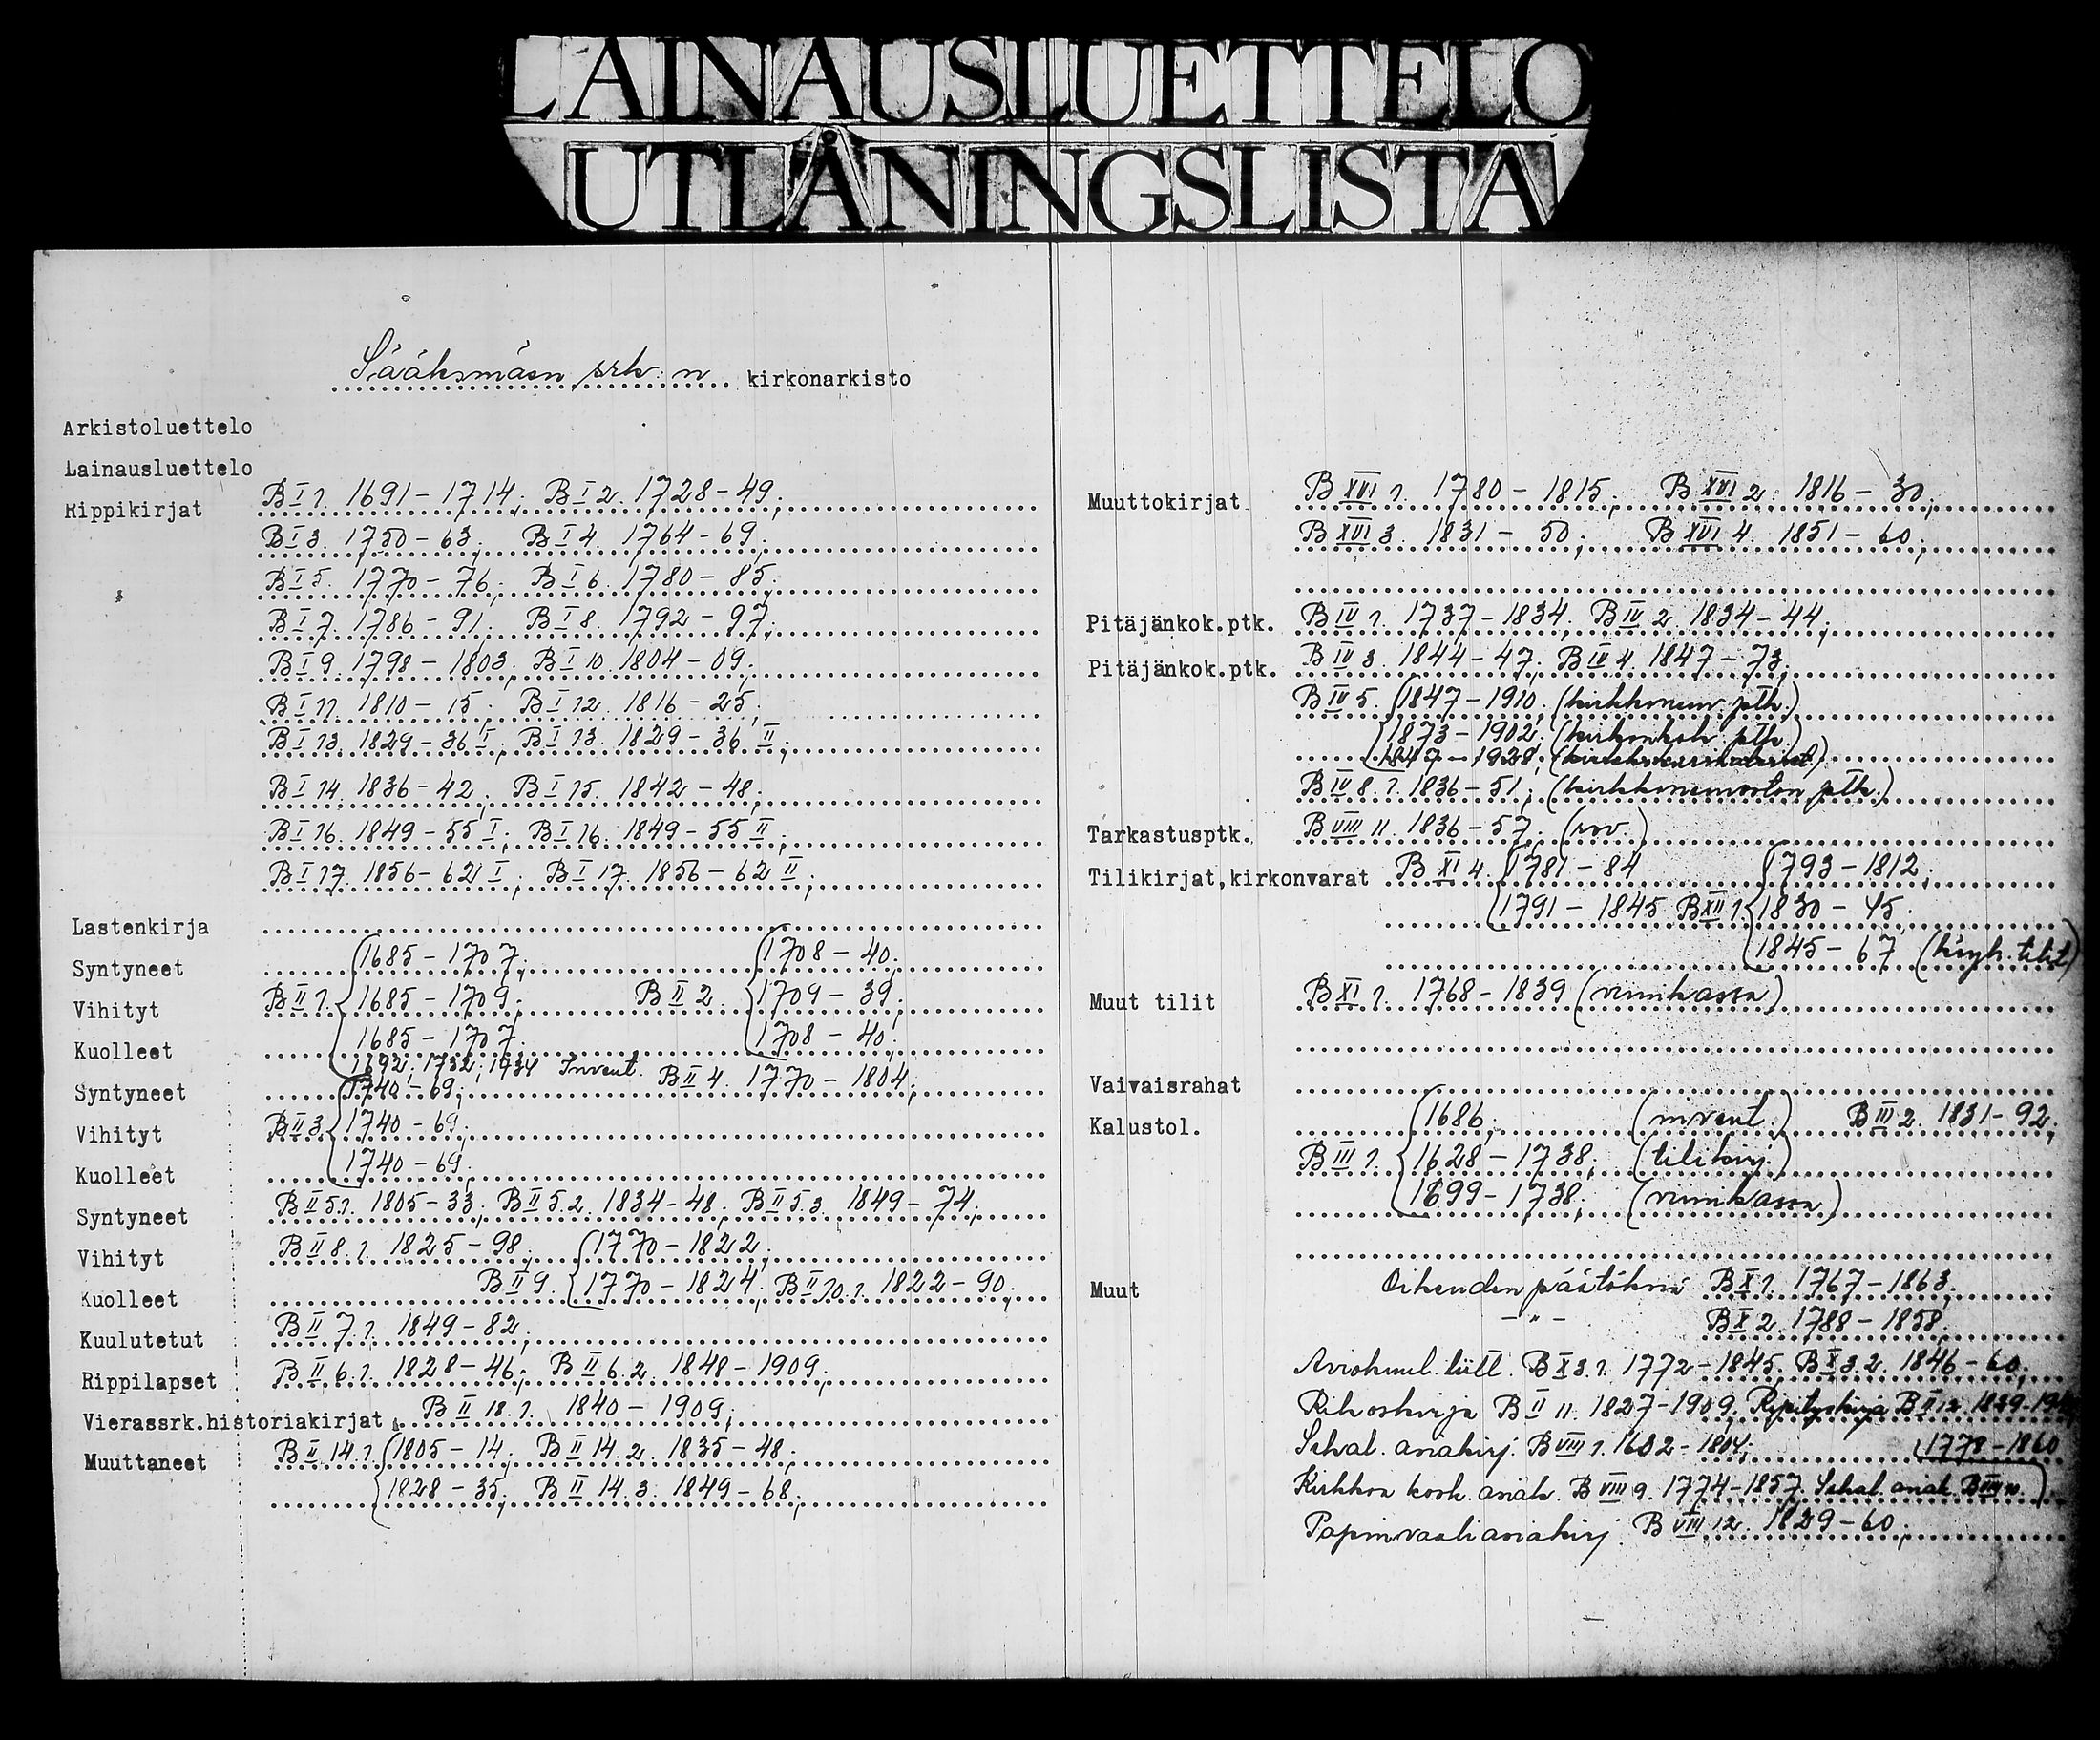 LAINAUSLUETTELO
UTLÅNINGSLISTA
Sääksmäen srk:n kirkonarkisto
Arkistoluettelo
Lainausluettelo
Rippikirjat BI1. 1691-1714; BI2. 1728-49;
BI3. 1750-63; BI4. 1764-69;
BI5. 1770-76; BI6. 1780-85;
BI7. 1786-91; BI8. 1792-97;
BI9. 1798-1803; BI10. 1804-09;
BI11. 1810-15; BI12. 1816-25;
BI13. 1829-36 I; BI13. 1829-36 II;
BI14. 1836-42; BI15. 1842-48;
BI16. 1849-55 I; BI16. 1849-55 II;
BI17. 1856-62 I; BI17. 1856-62 II;
Lastenkirja
Syntyneet 1685-1707; 1708-40;
Vihityt BII1. 1685-1709; BII2. 1709-39;
Kuolleet 1685-1707; 1708-40;
1692; 1732; 1734 Invent.
Syntyneet 1740-69; BII4. 1770-1804;
Vihityt BII3 1740-69;
Kuolleet 1740-69;
Syntyneet BII5.1. 1805-33; BII5.2. 1834-48; BII5.3. 1849-74;
Vihityt BII8.1. 1825-98; 1770-1822;
Kuolleet BII9. 1770-1824; BII10.1. 1822-90;
Kuulutetut BII7.1. 1849-82;
Rippilapset BII6.1. 1828-46; BII6.2. 1848-1909;
Vierassrk.historiakirjat BII18.1. 1840-1909;
Muuttaneet BII14.1. 1805-14; BII14.2. 1835-48;
1828-35; BII14.3. 1849-68;
Muuttokirjat BXVI1. 1780-1815; BXVI2. 1816-30;
BXVI3. 1831-50; BXVI4. 1851-60;
Pitäjänkok.ptk. BIV1. 1737-1834; BIV2. 1834-44;
Pitäjänkok.ptk. BIV3. 1844-47; BIV4. 1847-73;
BIV5. 1847-1910; (kirkkoneuv. ptk.)
1873-1902; (kirkonkok. ptk.)
1847-1928;
BIV8.1. 1836-51; (kirkkoneuvoston ptk.)
Tarkastusptk. BVIII11. 1836-57; (rov.)
Tilikirjat,kirkonvarat BXI4. 1781-84 1793-1812;
1791-1845 BXII1. 1830-45;
1845-67 (köyh. tilit)
Muut tilit BXI1. 1768-1839 (viinikassa)
Vaivaisrahat
Kalustol. 1686; (invent.) BIII2. 1831-92;
BIII1. 1628-1738; (tilikirj.)
1699-1738; (viinikassa)
Muut Oikeuden päätöksiä BX1. 1767-1863;
-"- BX2. 1788-1858;
Aviokuul. liitt. BX3.1. 1772-1845; BX3.2. 1846-60;
Rikoskirja BII11. 1827-1909. Ripityskirja BII12.
Sekal. asiakirj. BVIII1. 1602-1804; 1778-1860
Kirkkoa kosk. asiak. BVIII9. 1774-1857. Sekal. asiak. BVIII10.
Papinvaaliasiakirj. BVIII12. 1829-60;